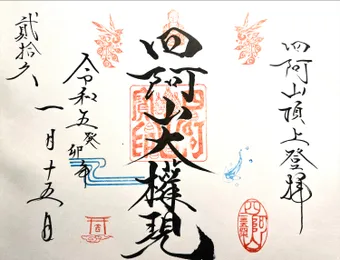 四阿山頂上登拝
四阿山大権現
令和五癸卯年
一月十五日
貳拾久